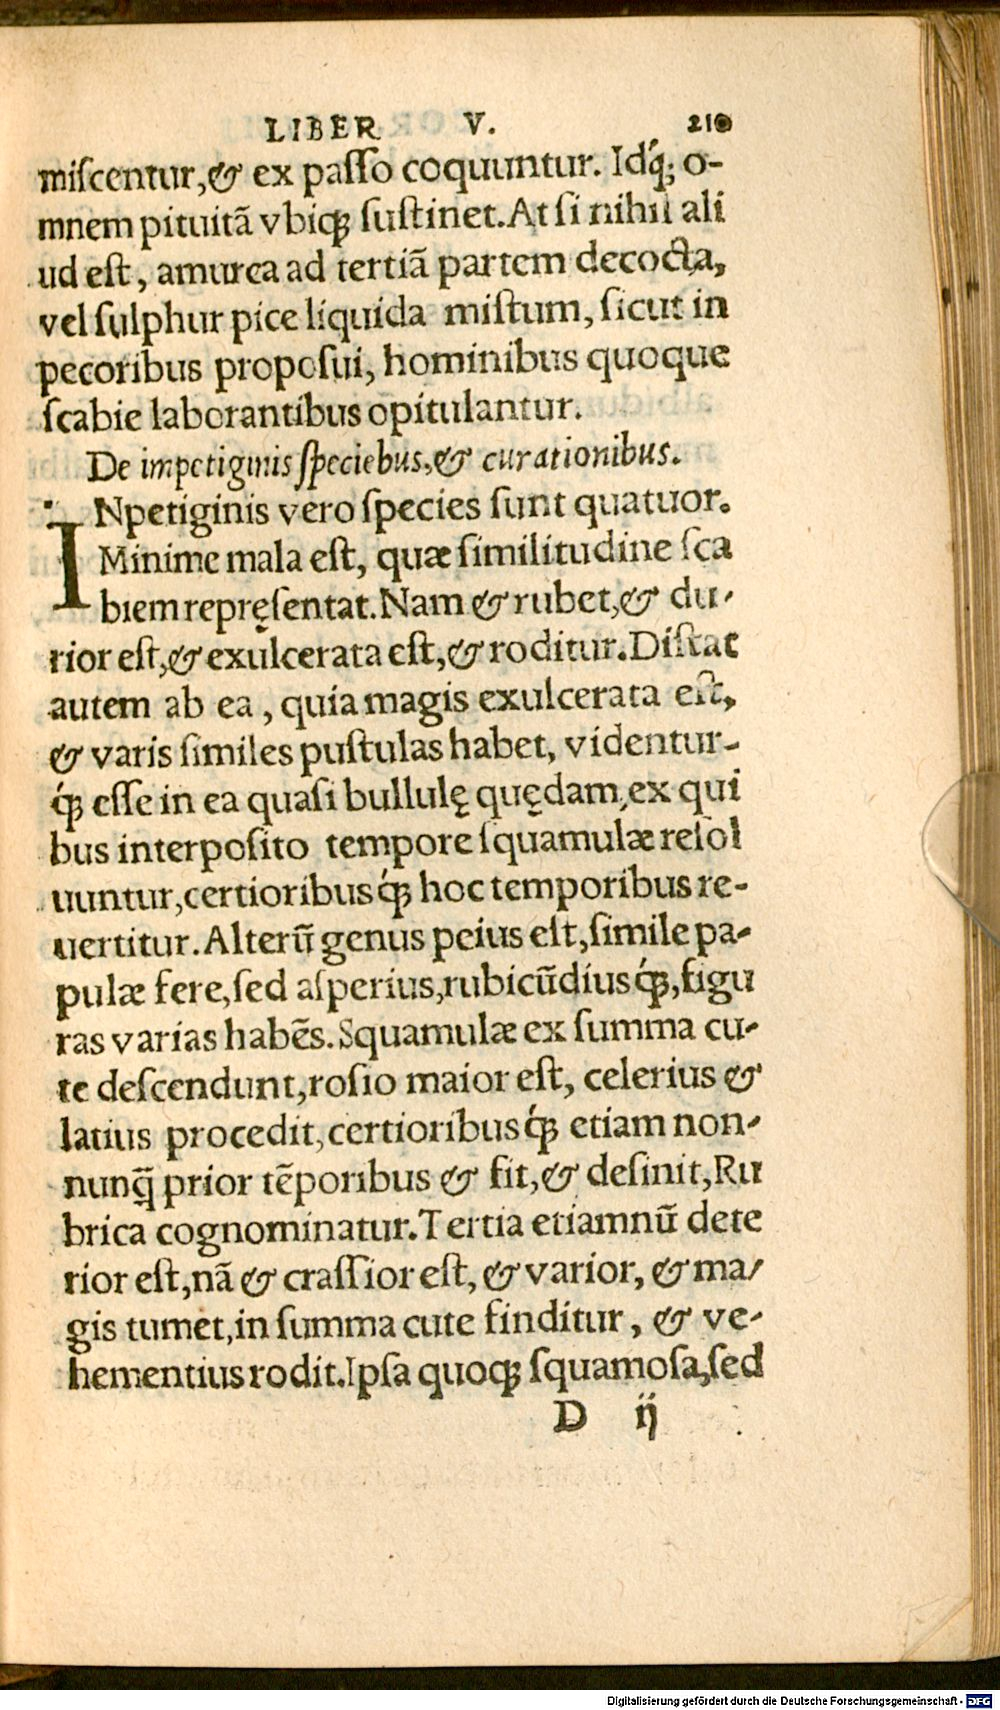 LIBER V. 210
miſcentur,& ex paſſo coquuntur. Idq́; o-
mnem pituitã vbiqꝫ ſuſtinet. At ſi nihil ali
ud eſt, amurca ad tertiã partem decocta,
vel ſulphur pice liquida miſtum, ſicut in
pecoribus propoſui, hominibus quoque
ſcabie laborantibus opitulantur.
De impetiginis ſpeciebus,& curationibus.
INpetiginis vero ſpecies ſunt quatuor.
Minime mala eſt, quæ ſimilitudine ſca
biem repręſentat. Nam & rubet,& du-
rior eſt,& exulcerata eſt,& roditur. Diſtat
autem ab ea, quia magis exulcerata eſt,
& varis ſimiles puſtulas habet, videntur-
q́ꝫ eſſe in ea quaſi bullulę quędam,ex qui
bus interpoſito tempore ſquamulæ reſol
uuntur,certioribusq́ꝫ hoc temporibus re-
uertitur. Alterũ genus peius eſt,ſimile pa-
pulæ fere,ſed aſperius,rubicũdiusq́ꝫ,figu
ras varias habẽs. Squamulæ ex ſumma cu-
te deſcendunt,roſio maior eſt, celerius &
latius procedit,certioribusq́ꝫ etiam non-
nunq̃ prior tẽporibus & fit,& deſinit,Ru
brica cognominatur. Tertia etiamnũ dete
rior eſt,nã & craſſior eſt, & varior, & ma-
gis tumet,in ſumma cute finditur, & ve-
hementius rodit. Ipſa quoqꝫ ſquamoſa,ſed
D ij
Digitalisierung gefördert durch die Deutsche Forschungsgemeinschaft - DFG